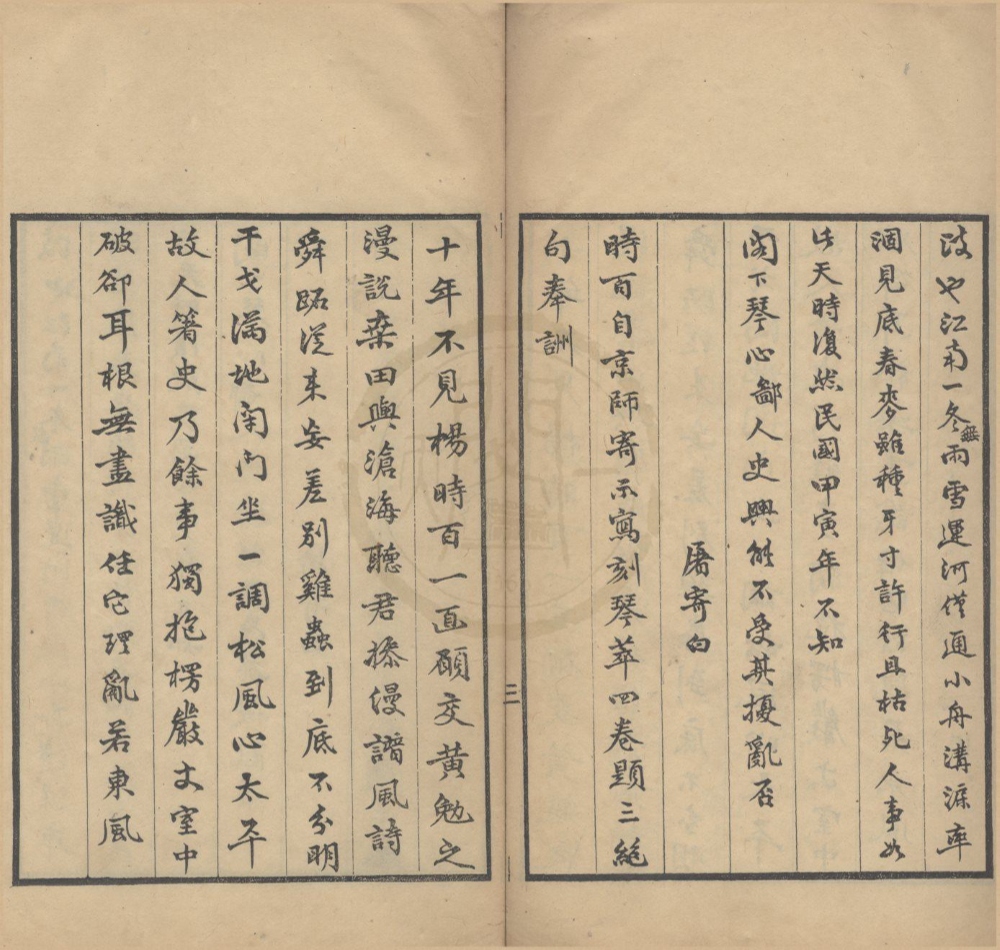 波也江南一冬雨雪運河僅通小舟溝洫率
涸見底春麥雖種牙寸許行且枯死人事如
此天時復然民國甲寅年不知
閣下琴心鄙人史興能不受其擾亂否
屠寄白
時百自京師寄示寫刻琴萃四卷題三絕
句奉詶
三
十年不見楊時百一面願交黃勉之
漫說桑田與滄海聽君操縵譜風詩
舜跖從來妄差別雞蟲到底不分明
干戈滿地閉門坐一調松風心太平
故人箸史乃餘事獨抱楞嚴丈室中
破卻耳根無盡識任它理亂若東風